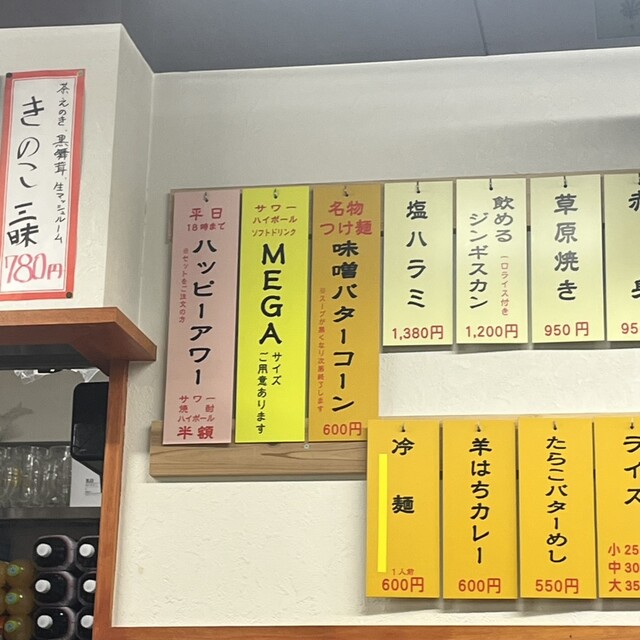 茶えのき、黒舞茸、生マッシュルーム
きのこ三昧
780円
平日
18時まで
ハッピーアワー
※セットをご注文の方
サワー
焼酎
ハイボール
半額
サワー
ハイボール
ソフトドリンク
MEGA
サイズ
ご用意あります
名物
つけ麺
味噌バターコーン
※スープが無くなり次第終了します
600円
塩ハラミ
1,380円
飲める
ジンギスカン
一口ライス付き
1,200円
草原焼き
950円
95
冷麺
1人前
600円
羊はちカレー
600円
たらこバターめし
550円
ライス
小25
中30
大35